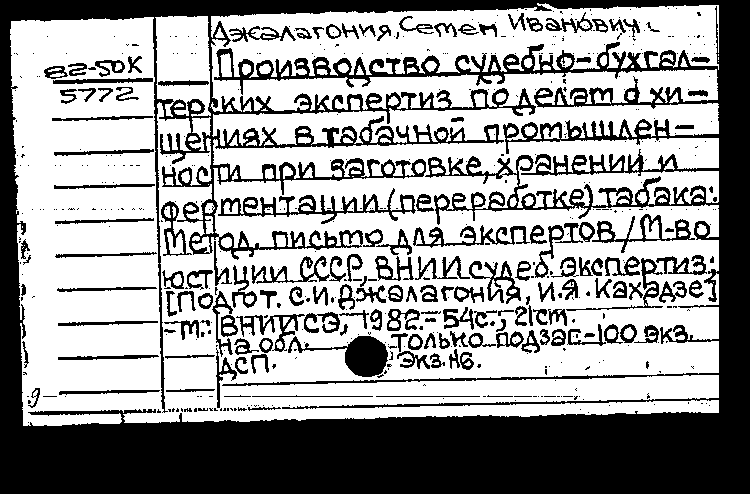 Джалагония, Сетем Иванович.
82-50К
Производство судебно-бухгал-
5772
терских экспертиз по делам о хи-
щениях в табачной промышлен-
ности при заготовке, хранении и
ферментации (переработке) табака:
Метод. письмо для экспертов / М-во
юстиции СССР, ВНИИ судеб. экспертиз;
[Подгот. С.И. Джалагония, И.Я. Кахадзе]
-М.: ВНИИСЭ, 1982.-54с.; 21см.
на обл. только подзаг.-100 экз.
ДСП. Экз.№6.
9